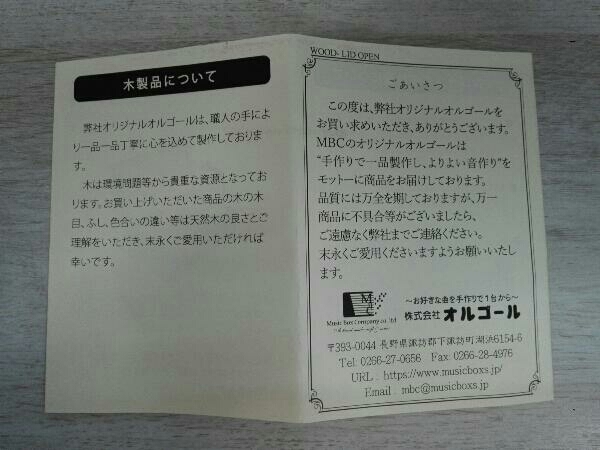 木製品について
弊社オリジナルオルゴールは、職人の手によ
り一品一品丁寧に心を込めて製作しておりま
す。
木は環境問題等から貴重な資源となってお
ります。お買い上げいただいた商品の木の木
目、ふし、色合いの違い等は天然木の良さとご
理解をいただき、末永くご愛用いただければ
幸いです。
WOOD- LID OPEN
ごあいさつ
この度は、弊社オリジナルオルゴールを
お買い求めいただき、ありがとうございます。
MBCのオリジナルオルゴールは
"手作りで一品製作し、よりよい音作り"を
モットーに商品をお届けしております。
品質には万全を期しておりますが、万一
商品に不具合等がございましたら、
ご遠慮なく弊社までご連絡ください。
末永くご愛用くださいますようお願いいたし
ます。
Music Box Company co.,ltd
～お好きな曲を手作りで1台から～
株式会社 オルゴール
〒393-0044 長野県諏訪郡下諏訪町湖浜6154-6
Tel: 0266-27-0656 Fax: 0266-28-4976
URL : https://www.musicboxs.jp/
Email : mbc@musicboxs.jp